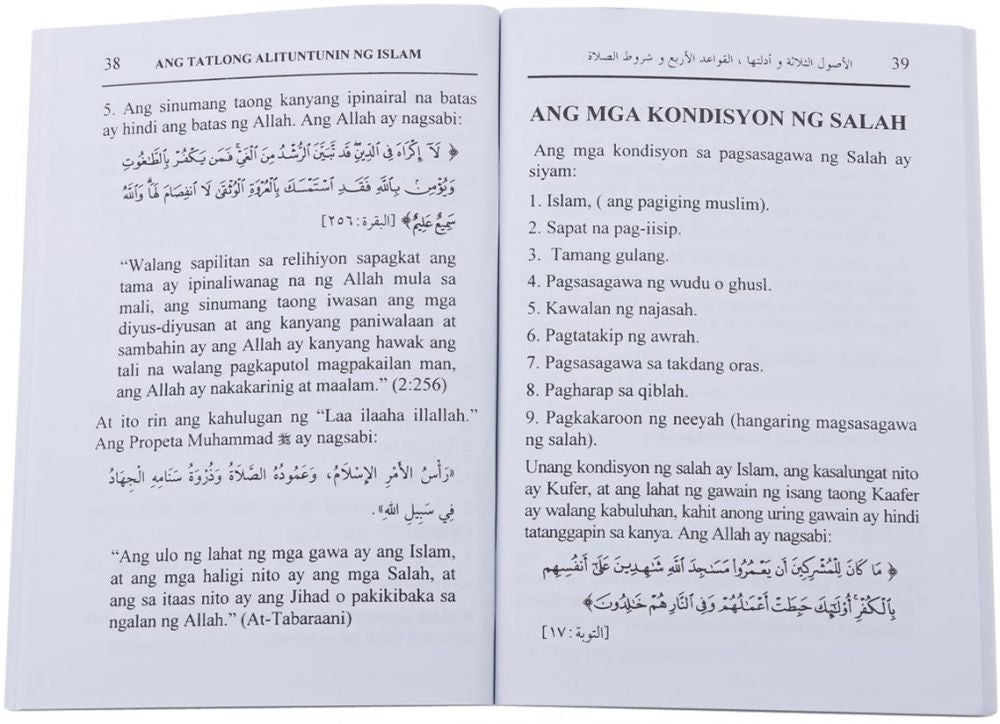 38 ANG TATLONG ALITUNTUNIN NG ISLAM
5. Ang sinumang taong kanyang ipinairal na batas
ay hindi ang batas ng Allah. Ang Allah ay nagsabi:
﴿ لَآ إِكْرَاهَ فِى ٱلدِّينِ ۖ قَد تَّبَيَّنَ ٱلرُّشْدُ مِنَ ٱلْغَىِّ ۚ فَمَن يَكْفُرْ بِٱلطَّـٰغُوتِ
وَيُؤْمِنۢ بِٱللَّهِ فَقَدِ ٱسْتَمْسَكَ بِٱلْعُرْوَةِ ٱلْوُثْقَىٰ لَا ٱنفِصَامَ لَهَا ۗ وَٱللَّهُ
سَمِيعٌ عَلِيمٌ ﴾ [البقرة:٢٥٦]
“Walang sapilitan sa relihiyon sapagkat ang
tama ay ipinaliwanag na ng Allah mula sa
mali, ang sinumang taong iwasan ang mga
diyus-diyusan at ang kanyang paniwalaan at
sambahin ay ang Allah ay kanyang hawak ang
tali na walang pagkaputol magpakailan man,
ang Allah ay nakakarinig at maalam.” (2:256)
At ito rin ang kahulugan ng “Laa ilaaha illallah.”
Ang Propeta Muhammad ﷺ ay nagsabi:
«رَأْسُ الأَمْرِ الإِسْلَامُ، وَعَمُودُهُ الصَّلَاةُ وَذُرْوَةُ سَنَامِهِ الْجِهَادُ
فِي سَبِيلِ اللهِ».
“Ang ulo ng lahat ng mga gawa ay ang Islam,
at ang mga haligi nito ay ang mga Salah, at
ang sa itaas nito ay ang Jihad o pakikibaka sa
ngalan ng Allah.” (At-Tabaraani)
الأصول الثلاثة و أدلتها ، القواعد الأربع و شروط الصلاة 39
ANG MGA KONDISYON NG SALAH
Ang mga kondisyon sa pagsasagawa ng Salah ay
siyam:
1. Islam, ( ang pagiging muslim).
2. Sapat na pag-iisip.
3. Tamang gulang.
4. Pagsasagawa ng wudu o ghusl.
5. Kawalan ng najasah.
6. Pagtatakip ng awrah.
7. Pagsasagawa sa takdang oras.
8. Pagharap sa qiblah.
9. Pagkakaroon ng neeyah (hangaring magsasagawa
ng salah).
Unang kondisyon ng salah ay Islam, ang kasalungat nito
ay Kufer, at ang lahat ng gawain ng isang taong Kaafer
ay walang kabuluhan, kahit anong uring gawain ay hindi
tatanggapin sa kanya. Ang Allah ay nagsabi:
﴿ مَا كَانَ لِلْمُشْرِكِينَ أَن يَعْمُرُوا۟ مَسَـٰجِدَ ٱللَّهِ شَـٰهِدِينَ عَلَىٰٓ أَنفُسِهِم
بِٱلْكُفْرِ ۚ أُو۟لَـٰٓئِكَ حَبِطَتْ أَعْمَـٰلُهُمْ وَفِى ٱلنَّارِ هُمْ خَـٰلِدُونَ ﴾
[التوبة:١٧]